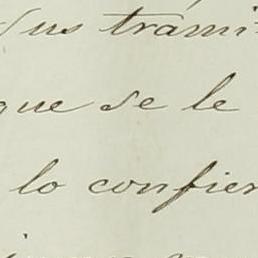 sus trámi
que se le
lo confier